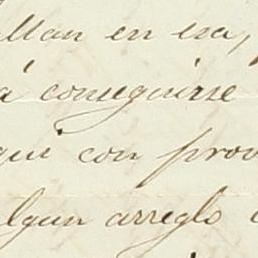 allan en esa,
á conseguirse
qui con prov
lgun arreglo